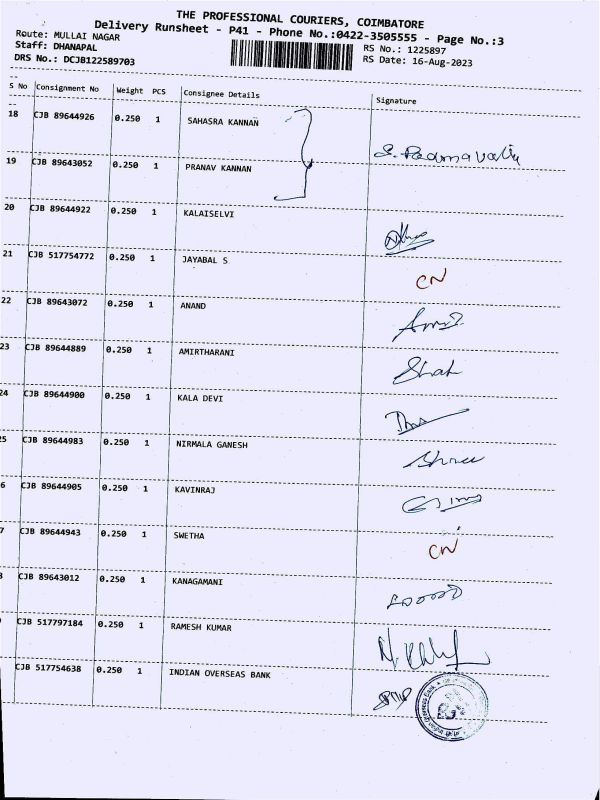 THE PROFESSIONAL COURIERS, COIMBATORE
Delivery Runsheet - P41 - Phone No.:0422-3505555 - Page No.:3
Route: MULLAI NAGAR
Staff: DHANAPAL
DRS No.: DCJB122589703
RS No.: 1225897
RS Date: 16-Aug-2023
S No Consignment No Weight PCS Consignee Details Signature
18 CJB 89644926 0.250 1 SAHASRA KANNAN
S. Padmavathy
19 CJB 89643052 0.250 1 PRANAV KANNAN
20 CJB 89644922 0.250 1 KALAISELVI
21 CJB 517754772 0.250 1 JAYABAL S CN
22 CJB 89643072 0.250 1 ANAND
23 CJB 89644889 0.250 1 AMIRTHARANI
24 CJB 89644900 0.250 1 KALA DEVI
5 CJB 89644983 0.250 1 NIRMALA GANESH
6 CJB 89644905 0.250 1 KAVINRAJ
7 CJB 89644943 0.250 1 SWETHA CN
8 CJB 89643012 0.250 1 KANAGAMANI
CJB 517797184 0.250 1 RAMESH KUMAR
CJB 517754638 0.250 1 INDIAN OVERSEAS BANK